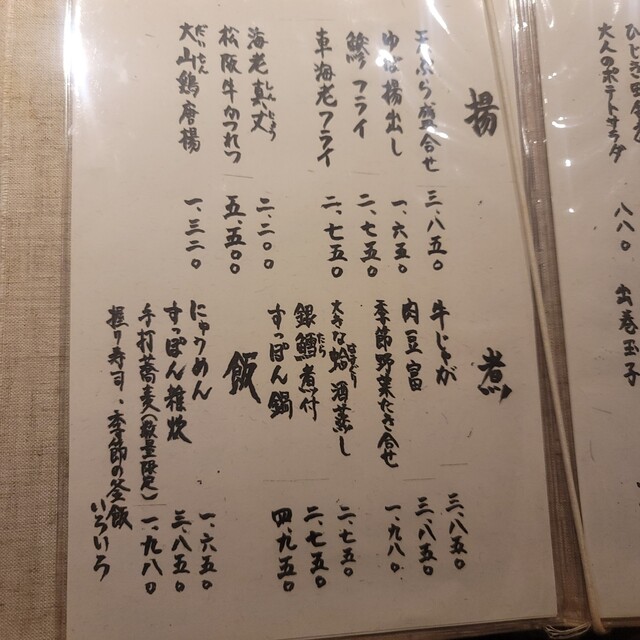 大人のポテトサラダ 八八〇
出巻玉子
揚
天ぷら盛合せ 三、八五〇
ゆば揚出し 一、六五〇
鯵フライ 二、七五〇
車海老フライ 二、七五〇
海老真丈 二、二〇〇
しんじょう
松阪牛かつれつ 五、五〇〇
大山鶏唐揚 一、三二〇
だいせん
煮
牛じゃが 三、八五〇
肉豆富 三、八五〇
季節野菜たき合せ 一、九八〇
大きな蛤酒蒸し 二、七五〇
はまぐり
銀鱈煮付 二、七五〇
たら
すっぽん鍋 四、九五〇
飯
にゅうめん 一、六五〇
すっぽん雑炊 三、八五〇
手打蕎麦(数量限定) 一、九八〇
握り寿司、季節の釜飯 いろいろ